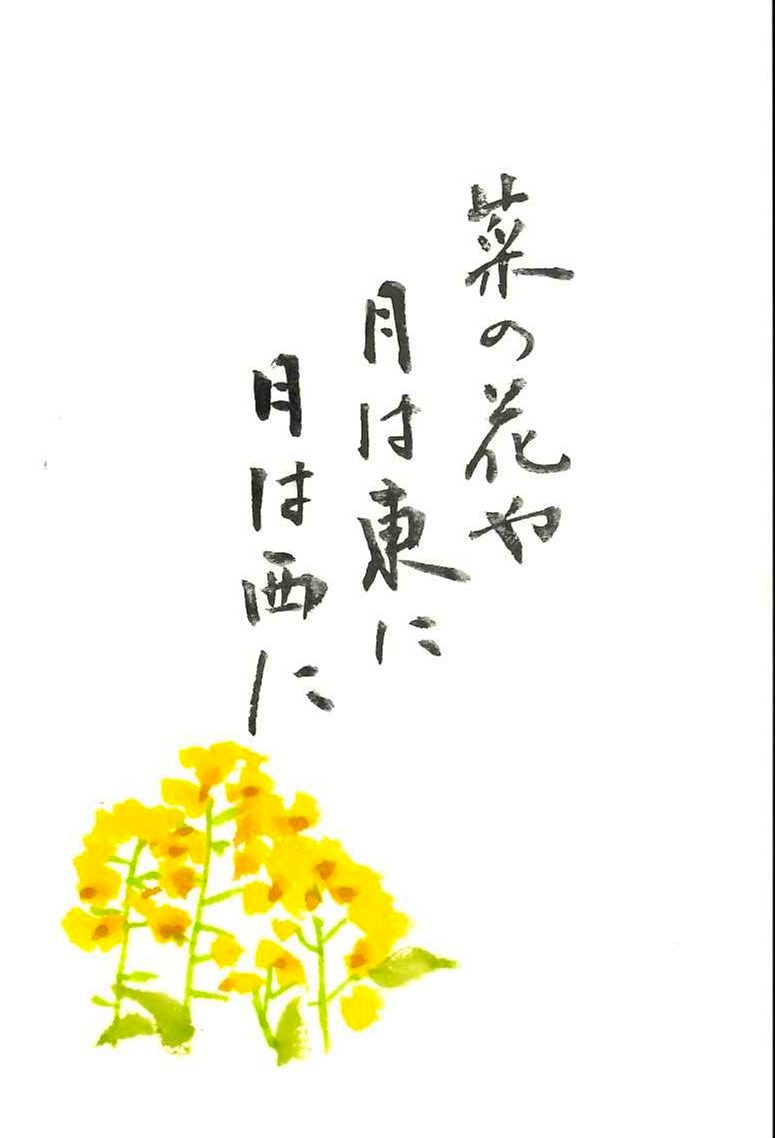 菜の花や
月は東に
月は西に